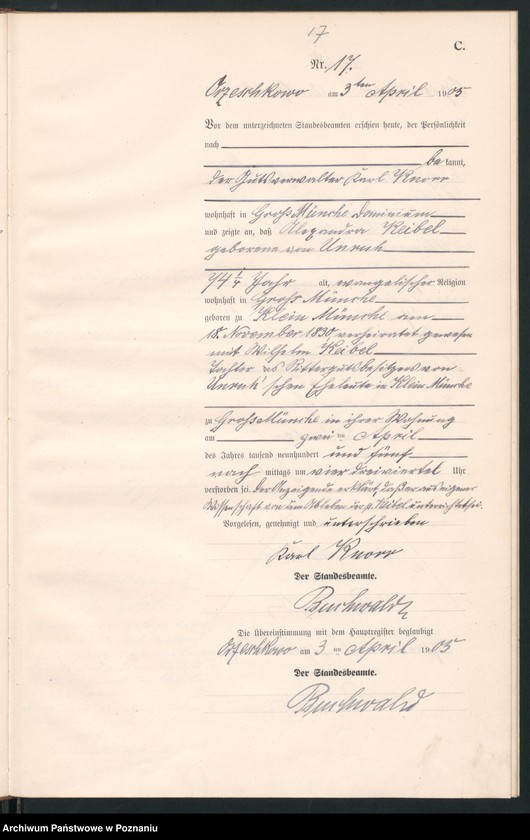 17
C.
Nr. 17.
Orzeschkowo am 3ten April 1905
Vor dem unterzeichneten Standesbeamten erschien heute, der Persönlichkeit
nach
be kannt,
der Gutsverwalter Karl Knorr
wohnhaft in Groß Münche Dominium
und zeigte an, daß Alexandra Keibel
geborene von Unruh
74 1/4 Jahr alt, evangelischer Religion
wohnhaft in Groß Münche
geboren zu Klein Münche am
18. November 1830 verheiratet gewesen
mit Wilhelm Keibel
Tochter des Rittergutsbesitzers von
Unruh'schen Eheleute in Klein Münche
zu Groß Münche in ihrer Wohnung
am zwei ten April
des Jahres tausend neunhundert und fünf
nach mittags um vier dreiviertel Uhr
verstorben sei. Der Anzeigende erklärt, daß er aus eigener
Wissenschaft von dem Ableben der p. Keibel unterrichtet sei.
Vorgelesen, genehmigt und unterschrieben
Karl Knorr
Der Standesbeamte.
Buchwald
Die Übereinstimmung mit dem Hauptregister beglaubigt
Orzeschkowo am 3 ten April 1905
Der Standesbeamte.
Buchwald
Archiwum Państwowe w Poznaniu